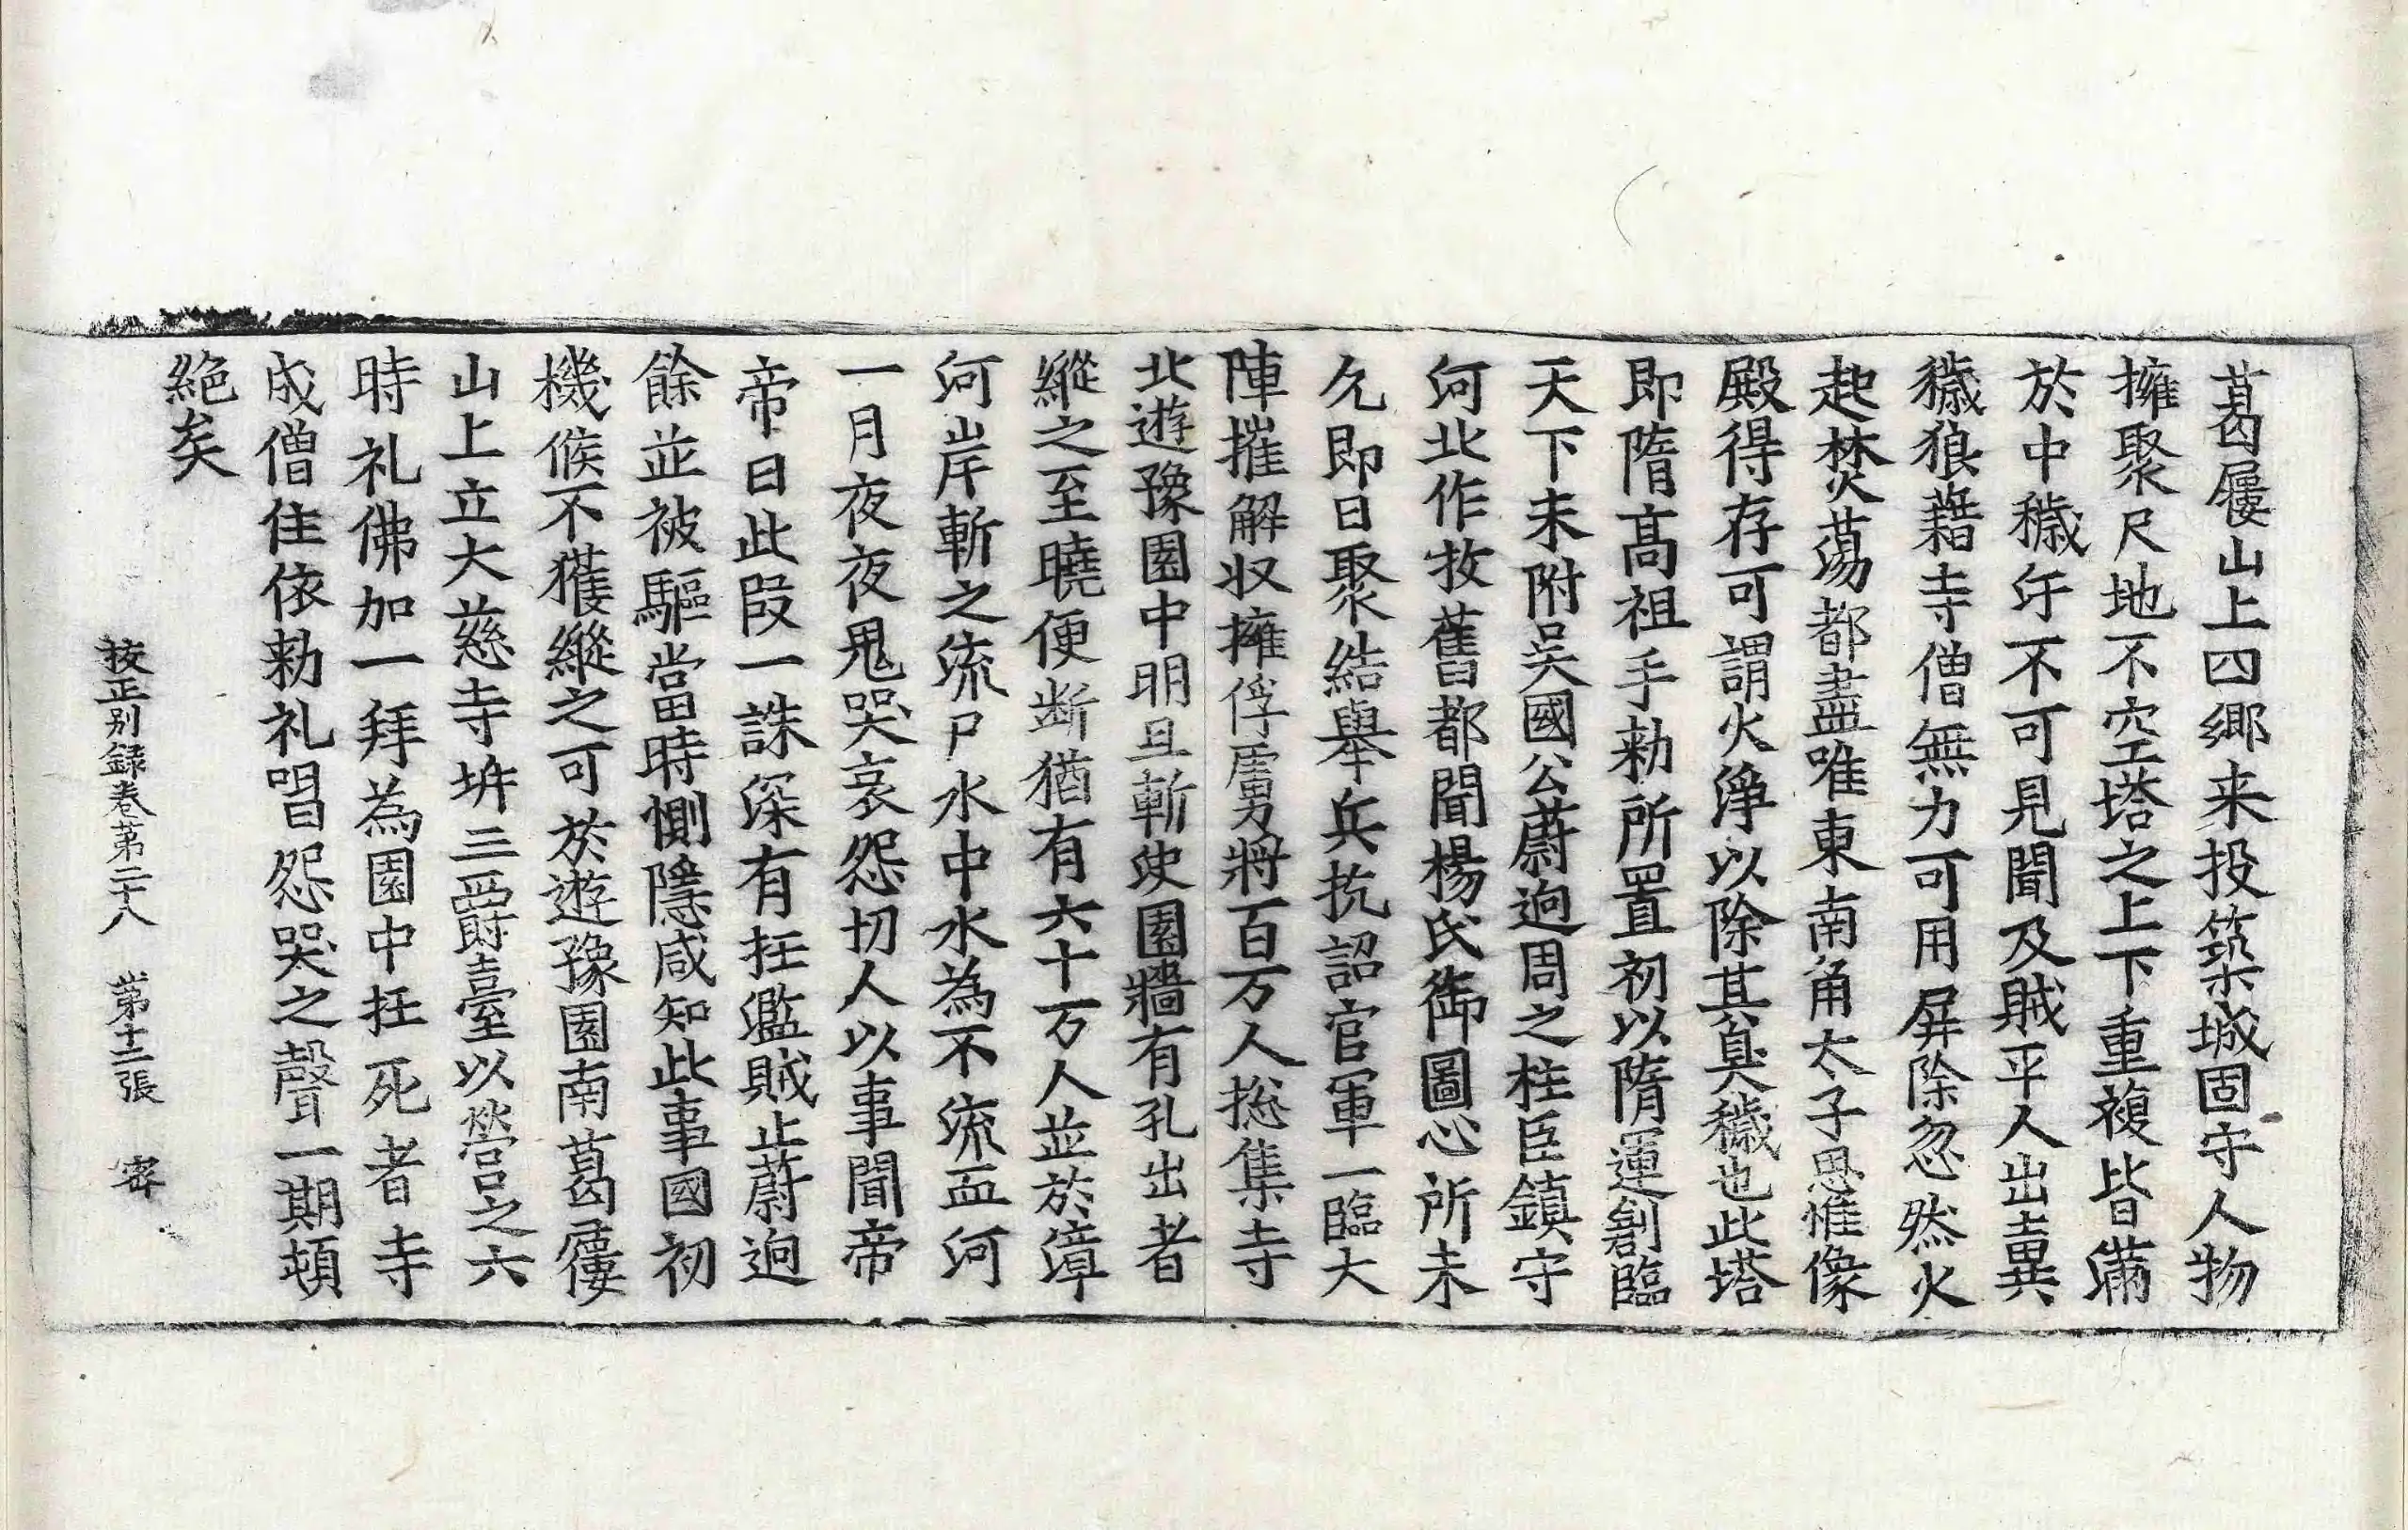 葛屨山上四鄉来投築城固守人物
擁聚尺地不空塔之上下重複皆滿
於中穢汙不可見聞及賊平人出糞
穢狼藉寺僧無力可用屏除忽然火
起焚蕩都盡唯東南角太子思惟像
殿得存可謂火淨以除其臭穢也此塔
即隋髙祖手勑所置初以隋運創臨
天下未附吳國公蔚迥周之柱臣鎮守
河北作牧舊都聞楊氏御圖心所未
允即日聚結舉兵抗詔官軍一臨大
陣摧解収擁俘虜將百万人捴集寺
北遊豫園中明旦斬决園牆有孔出者
縱之至曉便断猶有六十万人並於漳
河岸斬之流尸水中水為不流血河
一月夜夜鬼哭哀怨切人以事聞帝
帝曰此段一誅深有抂濫賊止蔚迥
餘並被驅當時惻隱咸知此事國初
機候不獲縱之可於遊豫園南葛屨
山上立大慈寺坼三爵臺以營之六
時礼佛加一拜為園中抂死者寺
成僧住依勑礼唱怨哭之聲一期頓
絕矣
挍正别録卷苐二十八　苐十二張　宻